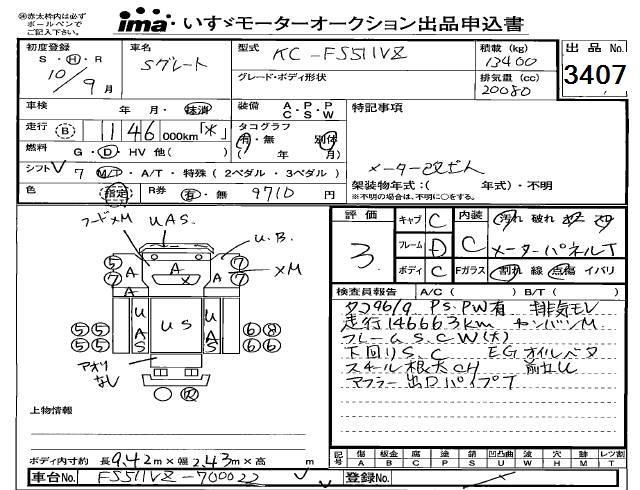 ㊟赤太枠内は必ず
ボールペンで
ご記入下さい。
ima いすゞモーターオークション出品申込書
初度登録
S・H・R
10/9月
車名
Sグレート
型式 KC-FS511VZ
グレード・ボディ形状
積載(kg)
13400
排気量(cc)
20080
出品No.
3407
車検 年・月・抹消
装備 A.P.P
C.S.W
特記事項
メーター改ざん
走行 B 1146 000km「※」
タコグラフ
有・無 別付
( 年 月)
燃料 G・D・HV 他( )
シフト 7 M/T・A/T・特殊(2ペダル・3ペダル)
架装物年式:( 年式)・不明
※不明の場合は、不明に○をする。
色 指定 R券 有・無 9710円
フードXM UAS.
U.B.
XM
5 7
A A A
5 7
U A S
US
U A S
5 5
5 5
6 8
6 6
アオリ
なし
評価
3
キャブ C
フレーム D
ボディ C
内装 C
Fガラス
汚れ 破れ
メーターパネルT
割れ 線 点傷 イバリ
検査員報告 A/C( ) B/T( )
タコ96/9 PS.PW有
走行146663km
フレームS.C.W(大)
下回りS.C EGオイル
スチール
マフラー出口パイプT
上物情報
ボディ内寸約 長9.42m×幅2.43m×高 m
記号 傷A 板金B 腐C 塗P 錆S 凹凸曲U 波W 穴H 跡M レツ割T
車台No. FS511VZ-700022
登録No.